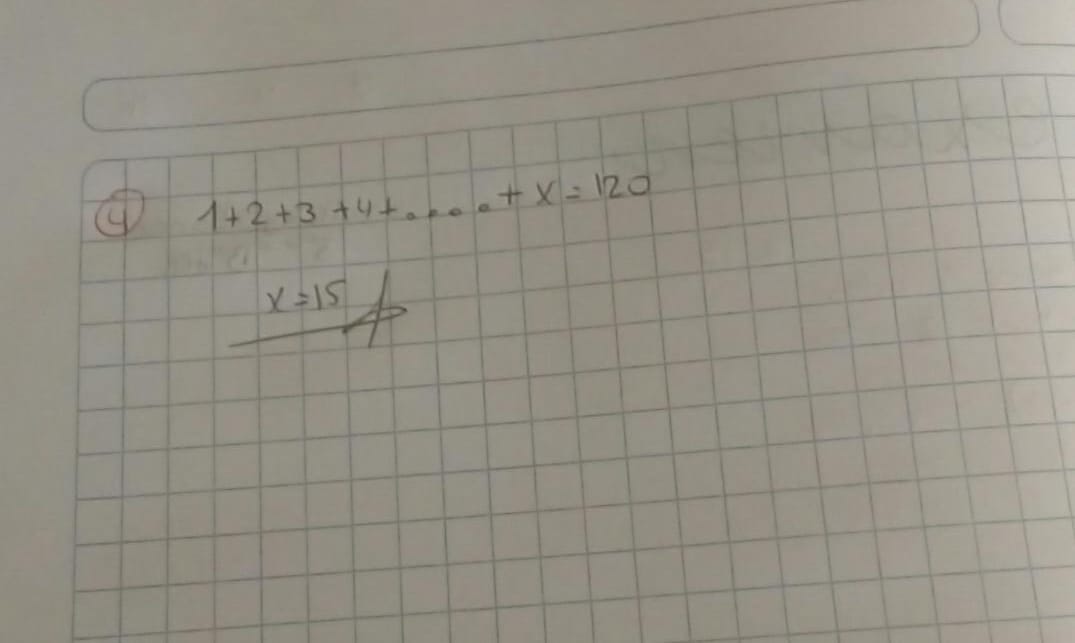 4 1+2+3+4+.....+x=120
x=15